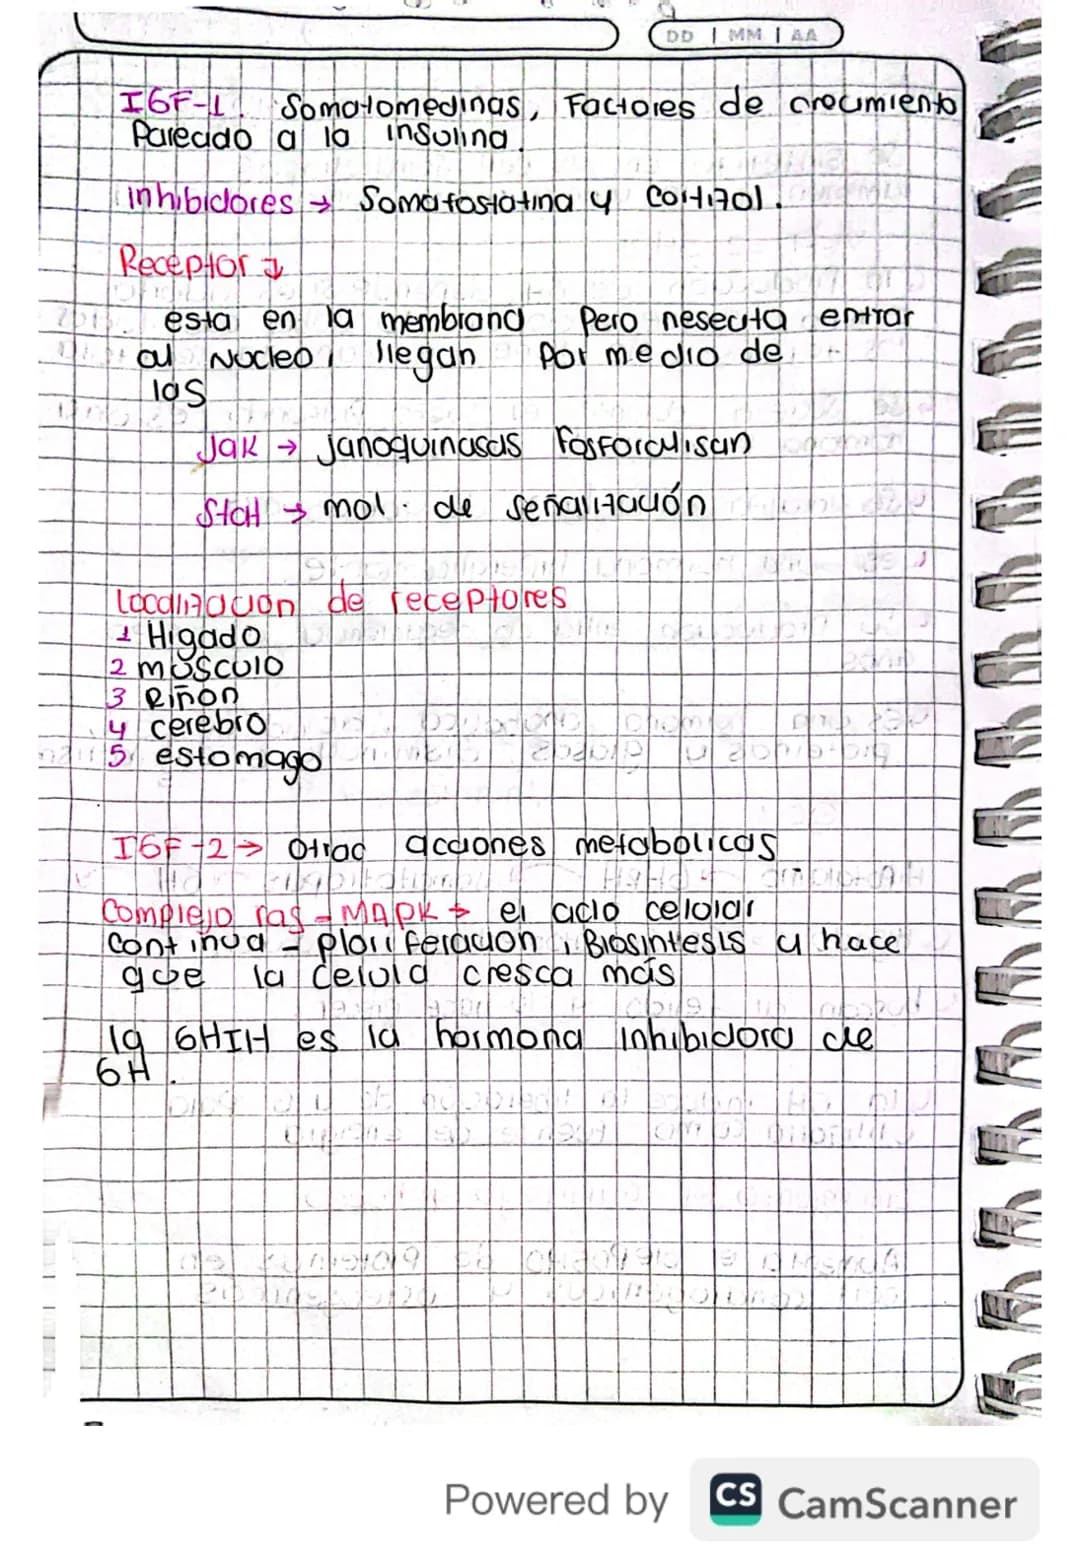 DD | MM | AA
IGF-1. Somatomedinas, Factores de crecimiento
Parecido a la insulina.
inhibidores → Somatostatina y Cortizol.
Receptor ↓
esta en la membrana Pero nesecita entrar
al Nucleo, llegan Por medio de
las
Jak → Janoquinasas Fosforalisan
Stat → mol. de señalización
Localización de receptores
1 Higado
2 músculo
3 Riñon
4 cerebro
5 estomago
IGF-2 → Otrac acciones metabolicas
Complejo ras - MAPK → el ciclo celular
continua - ploriferacion, Biosintesis y hace
que la celula cresca más
la GHIH es la hormona inhibidora de
GH.
Powered by CS CamScanner